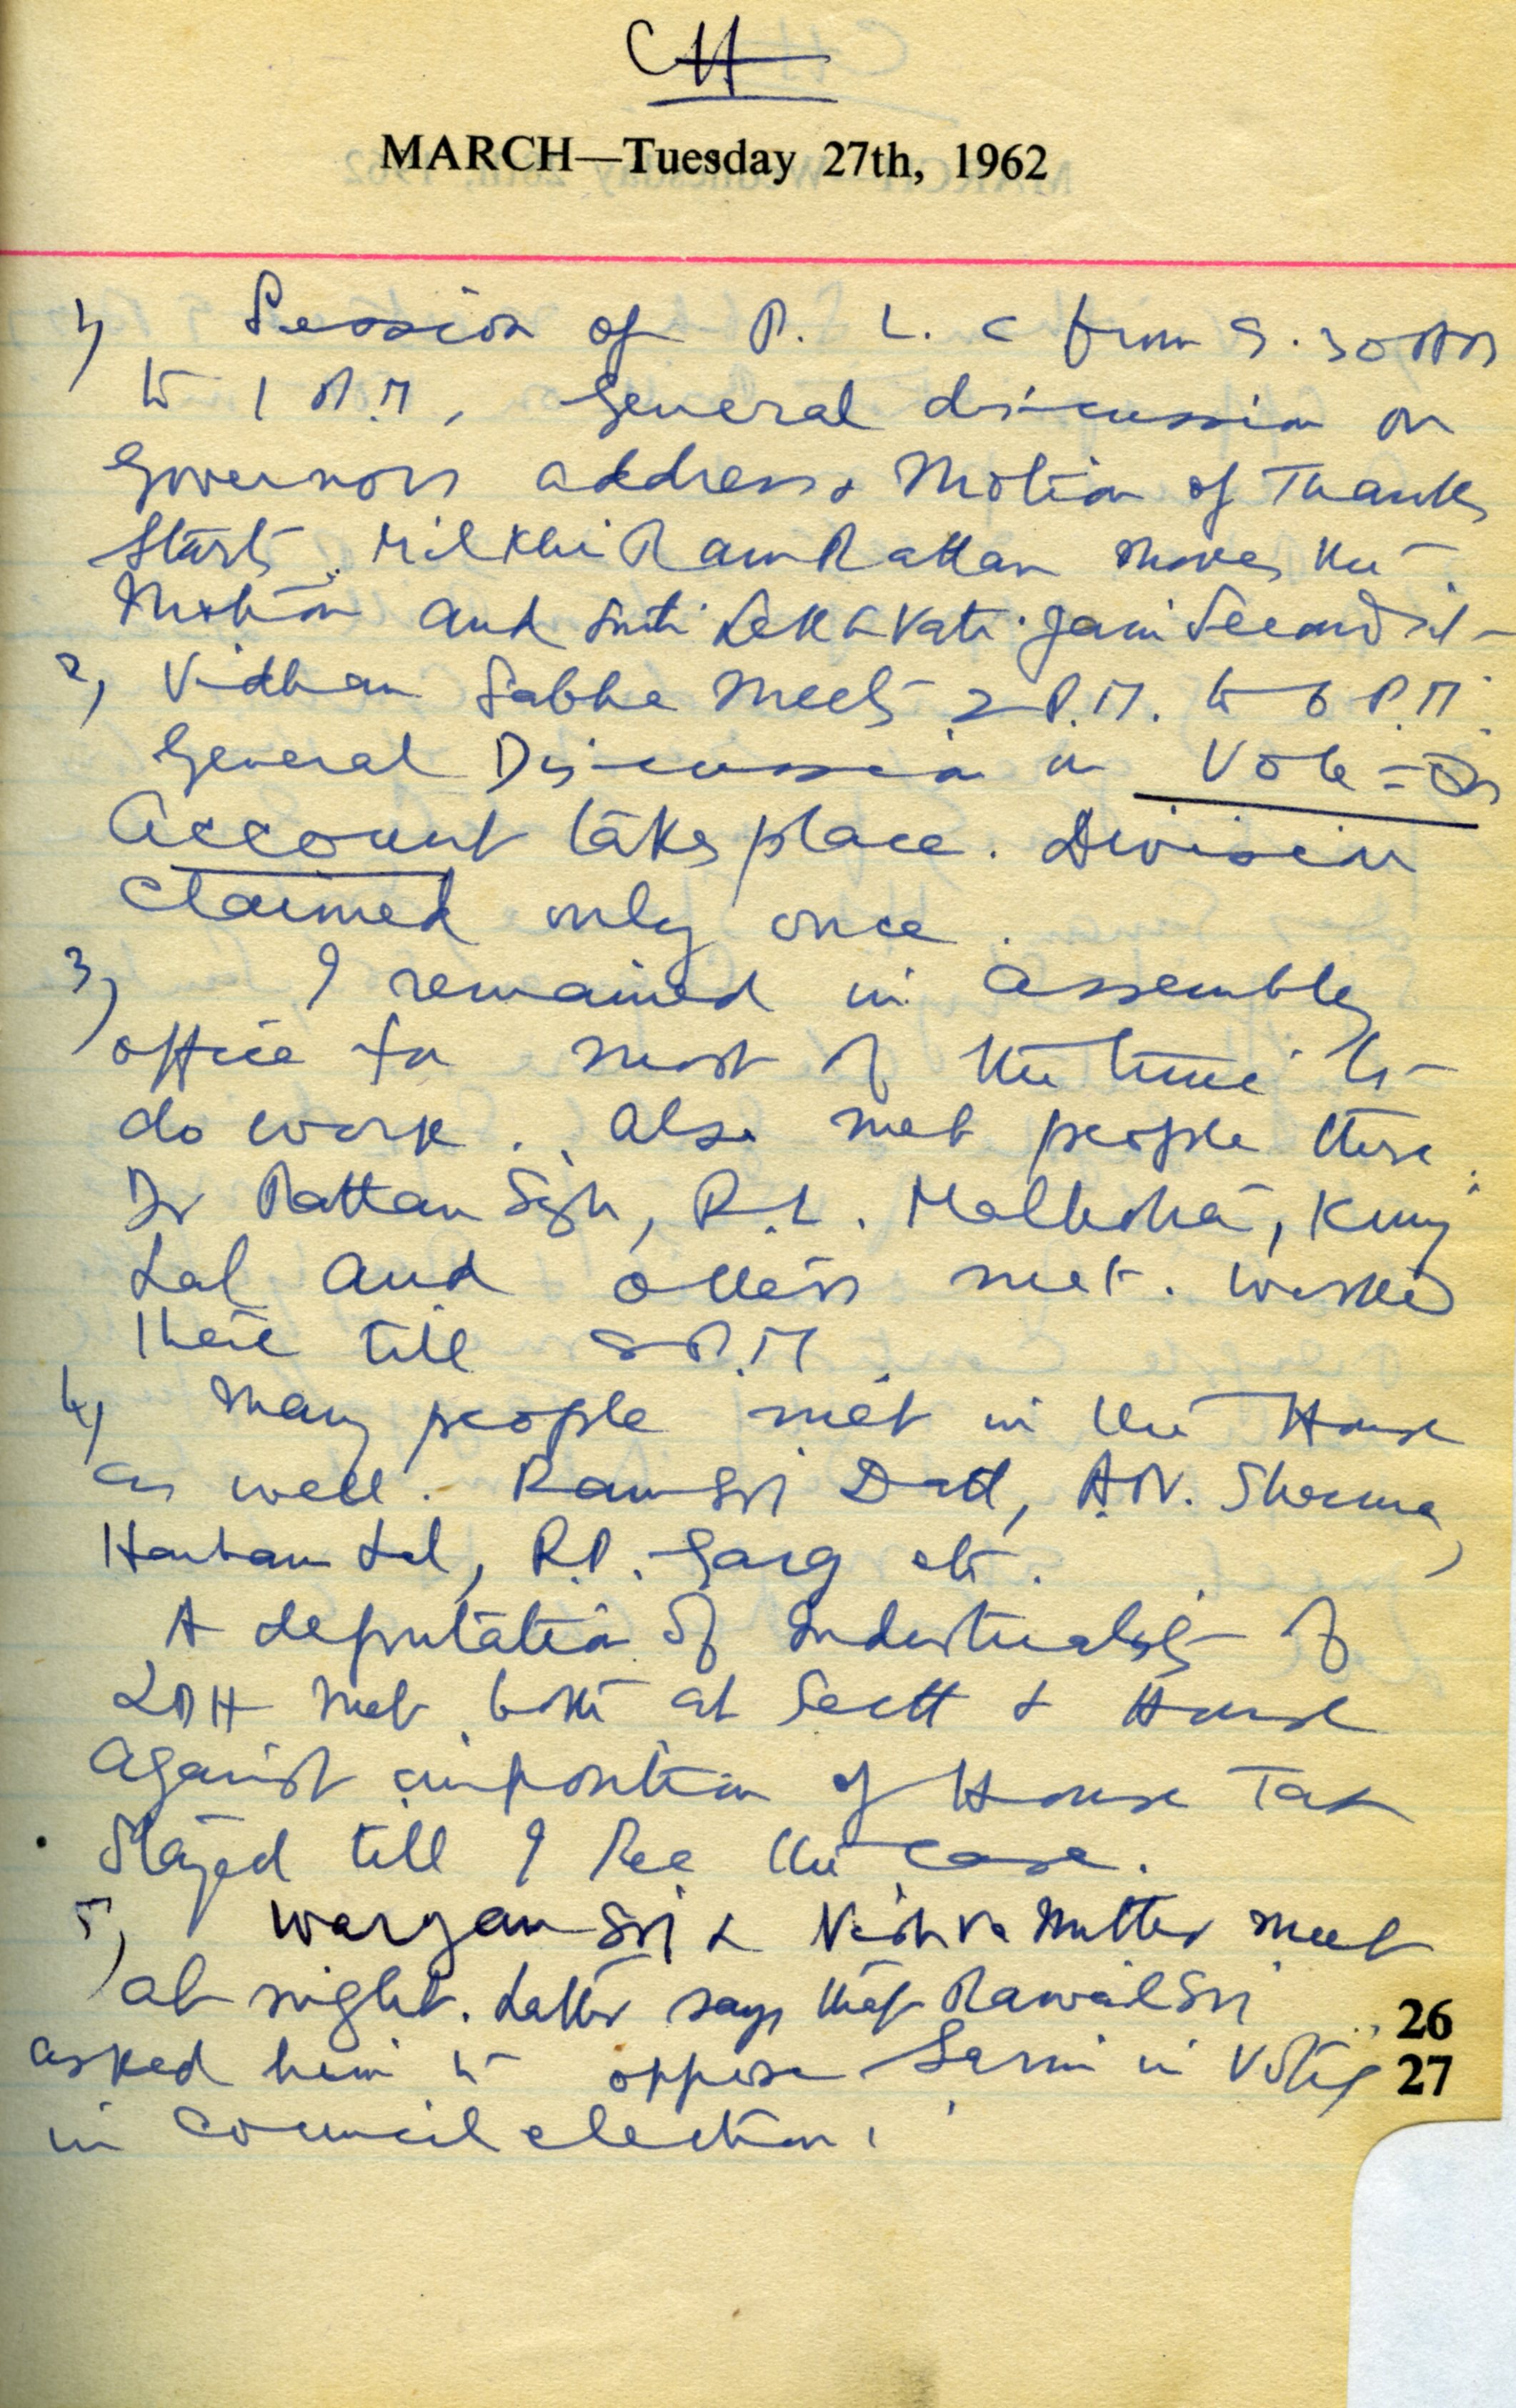 CH
MARCH—Tuesday 27th, 1962
1) Session of P. L. C from 9.30 AM
to 1 P.M, General discussion on
Governors address & Motion of Thanks
starts. Milkhi Ram Rattan moves the
Motion and Smti Lekhavati Jain Seconds it-
2) Vidhan Sabha meets 2 P.M. to 6 P.M.
General Discussion on Vote-On
Account takes place. Division
claimed only once.
3) I remained in assembly
office for most of the time to
do work. Also met people there.
Dr Rattan Sigh, R.L. Malhotra, Kunj
Lal and others met. worked
there till 8 P.M
4) Many people met in the House
as well. Ram Dad, A.N. Sharma,
Harbans Lal, R.P. Garg etc.
A deputation of Industrialists of
LDH met both at Sectt & House
against imposition of House Tax
Stayed till I see the case.
5) Waryam & Vishva Mutter meet
at night. Latter says that Rawail
asked him to oppose in Voting
in Council election.
26
27